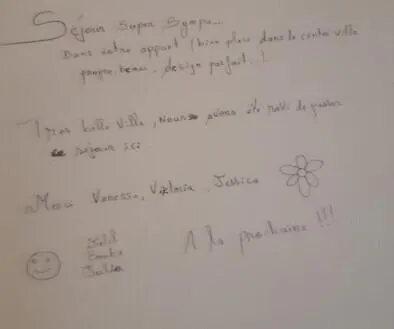 Séjour Super Sympa...
Dans votre appart (bien placé dans le centre ville
propre, beau, design parfait !
Très belle ville, nous avons été ravi de passer
ce séjour ici
Merci Vanessa, Victoria, Jessica
Julia
A la prochaine !!!